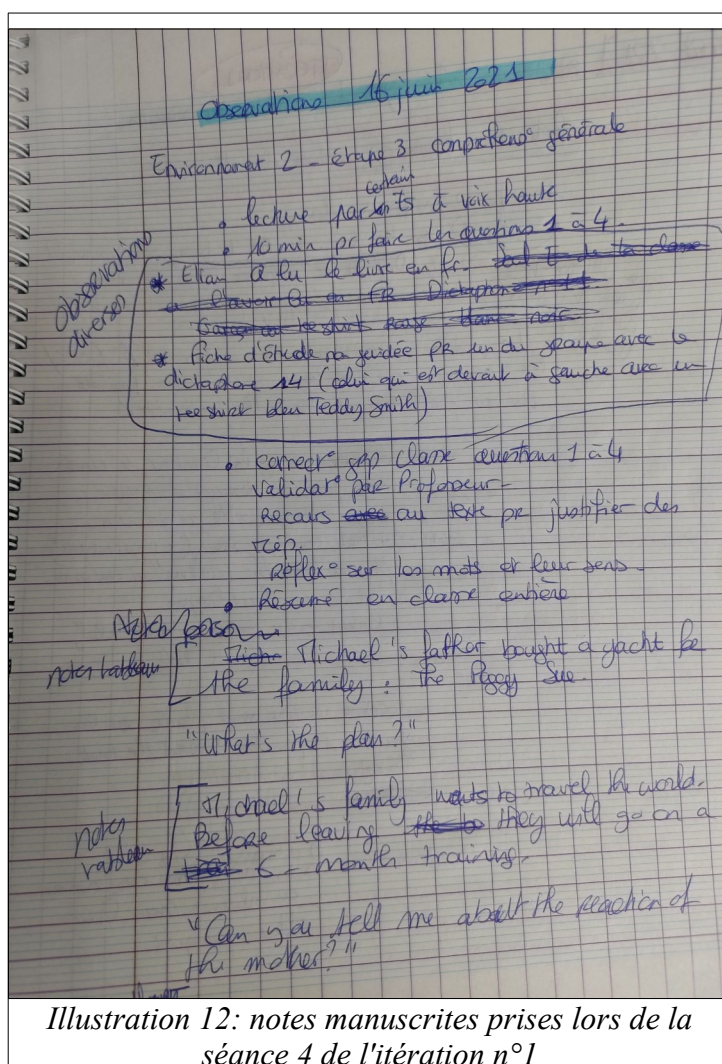 Observations 16 juin 2021
Environnemet 2 - étape 3 compréhens° générale
certains
• lecture par ts à voix haute
• 10 min pr faire les questions 1 à 4.
Observations
diverses
* Elian a lu le livre en fr.
en FR Dictaphone
tee shirt rouge blanc noir
* fiche d'étude na guidée PR un du groupe avec le
dictaphone 14 (celui qui est devant à gauche avec un
tee shirt bleu Teddy Smith)
• correct° grp classe question 1 à 4
validat° par Professeur
Recours avec au texte pr justifier des
rép.
Réflex° sur les mots et leur sens.
• Résumé en classe entière
notes tableau
Michael's father bought a yacht for
the family: the Peggy Sue.
"What's the plan?"
notes
tableau
Michael's family wants to travel the world.
Before leaving they will go on a
6-month training.
"Can you tell me about the reaction of
the mother?"
Illustration 12: notes manuscrites prises lors de la
séance 4 de l'itération n°1